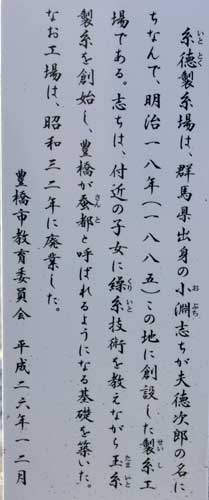 糸徳製糸場は、群馬県出身の小淵志ちが夫徳次郎の名に
ちなんで、明治一八年(一八八五)この地に創設した製糸工
場である。志ちは、付近の子女に繰糸技術を教えながら玉糸
製糸を創始し、豊橋が蚕都と呼ばれるようになる基礎を築いた。
なお工場は、昭和三二年に廃業した。
豊橋市教育委員会 平成二六年一二月